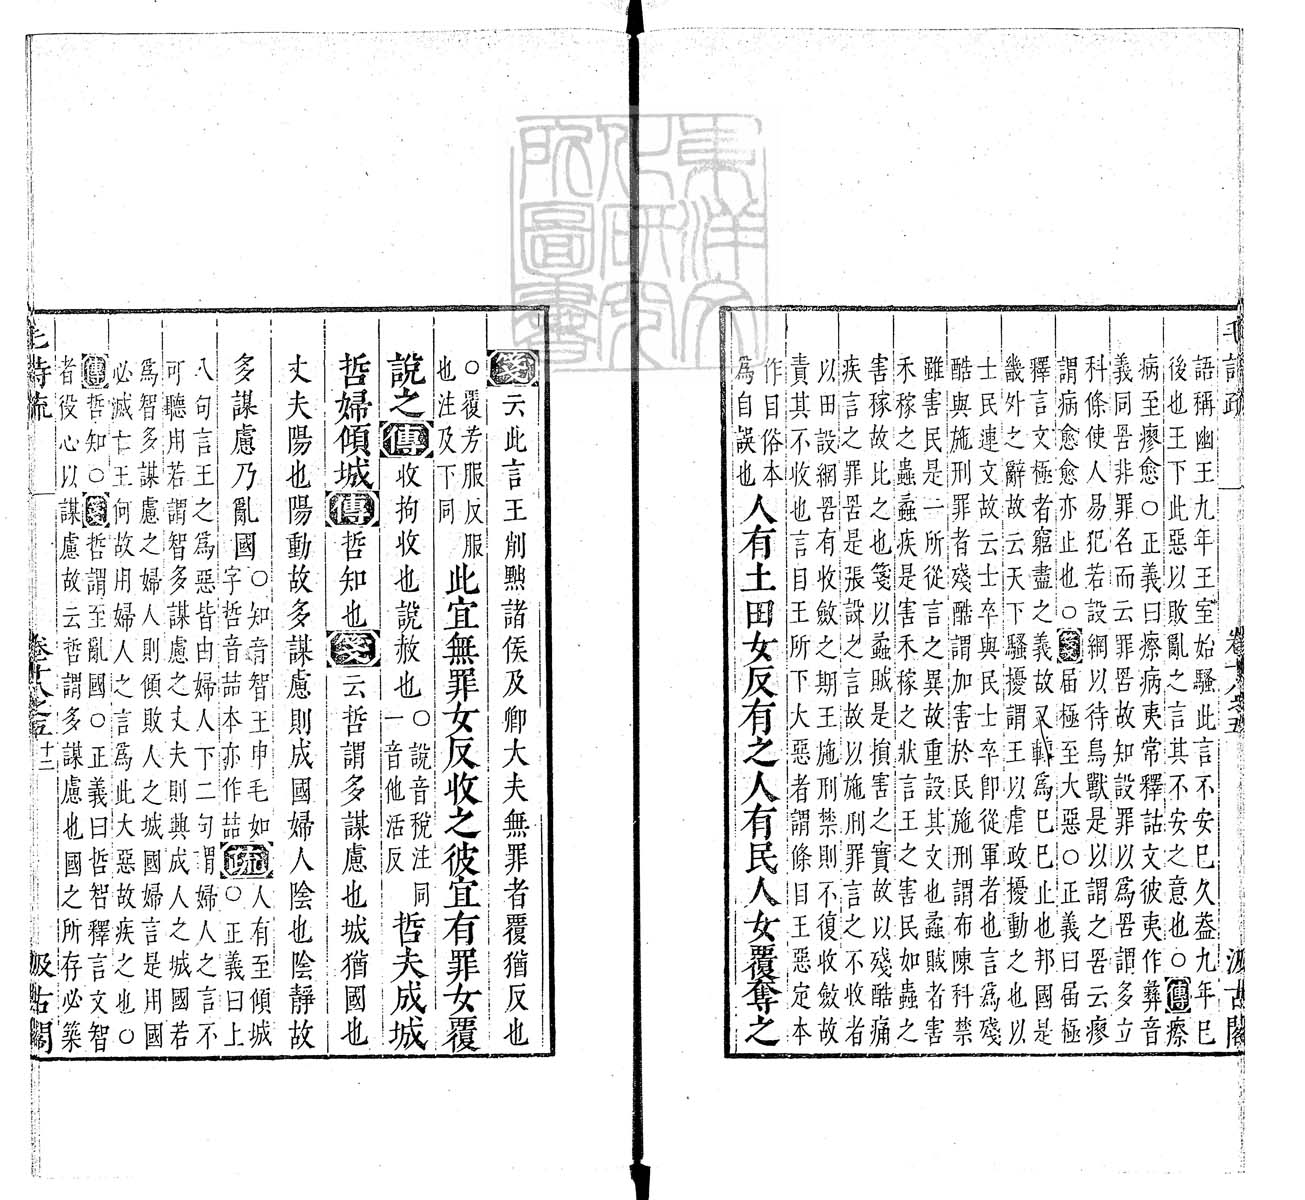 語稱幽王九年王室始騷此言不安巳久益九年巳
後也王下此惡以敗亂之言其不安之意也○傳瘵
病至瘳愈○正義曰瘵病夷常釋詁文彼夷作彝音
義同罟非罪名而云罪罟故知設罪以爲罟謂多立
科條使人易犯若設網以待鳥獸是以謂之罟云瘳
謂病愈愈亦止也○箋届極至大惡○正義曰届極
釋言文極者窮盡之義故又轉爲巳巳止也邦國是
畿外之辭故云天下騷擾謂王以虐政擾動之也以
士民連文故云士卒與民士卒卽從軍者也言爲殘
酷與施刑罪者殘酷謂加害於民施刑謂布陳科禁
雖害民是一所從言之異故重設其文也蟊賊者害
禾稼之蟲蟊疾是害禾稼之狀言王之害民如蟲之
害稼故比之也箋以蟊賊是損害之實故以殘酷痛
疾言之罪罟是張設之言故以施刑罪言之不收者
以田設網罟有收斂之期王施刑禁則不復收斂故
責其不收也言目王所下大惡者謂條目王惡定本
作目俗本
爲自誤也
人有土田女反有之人有民人女覆奪之
毛詩疏
卷十八之五
汲古閣
箋云此言王削黜諸侯及卿大夫無罪者覆猶反也
○覆芳服反服
也注及下同
此宜無罪女反收之彼宜有罪女覆
說之傳收拘收也說赦也
○說音稅注同
一音他活反
哲夫成城
哲婦傾城傳哲知也箋云哲謂多謀慮也城猶國也
丈夫陽也陽動故多謀慮則成國婦人陰也陰靜故
多謀慮乃亂國
○知音智王申毛如
字哲音喆本亦作喆
疏
人有至傾城
○正義曰上
八句言王之爲惡皆由婦人下二句謂婦人之言不
可聽用若謂智多謀慮之丈夫則興成人之城國若
爲智多謀慮之婦人則傾敗人之城國婦言是用國
必滅亡王何故用婦人之言爲此大惡故疾之也○
傳哲知○箋哲謂至亂國○正義曰哲智釋言文智
者役心以謀慮故云哲謂多謀慮也國之所存必築
毛詩疏
卷十八之五
十二
汲古閣
東洋文化研究所圖書